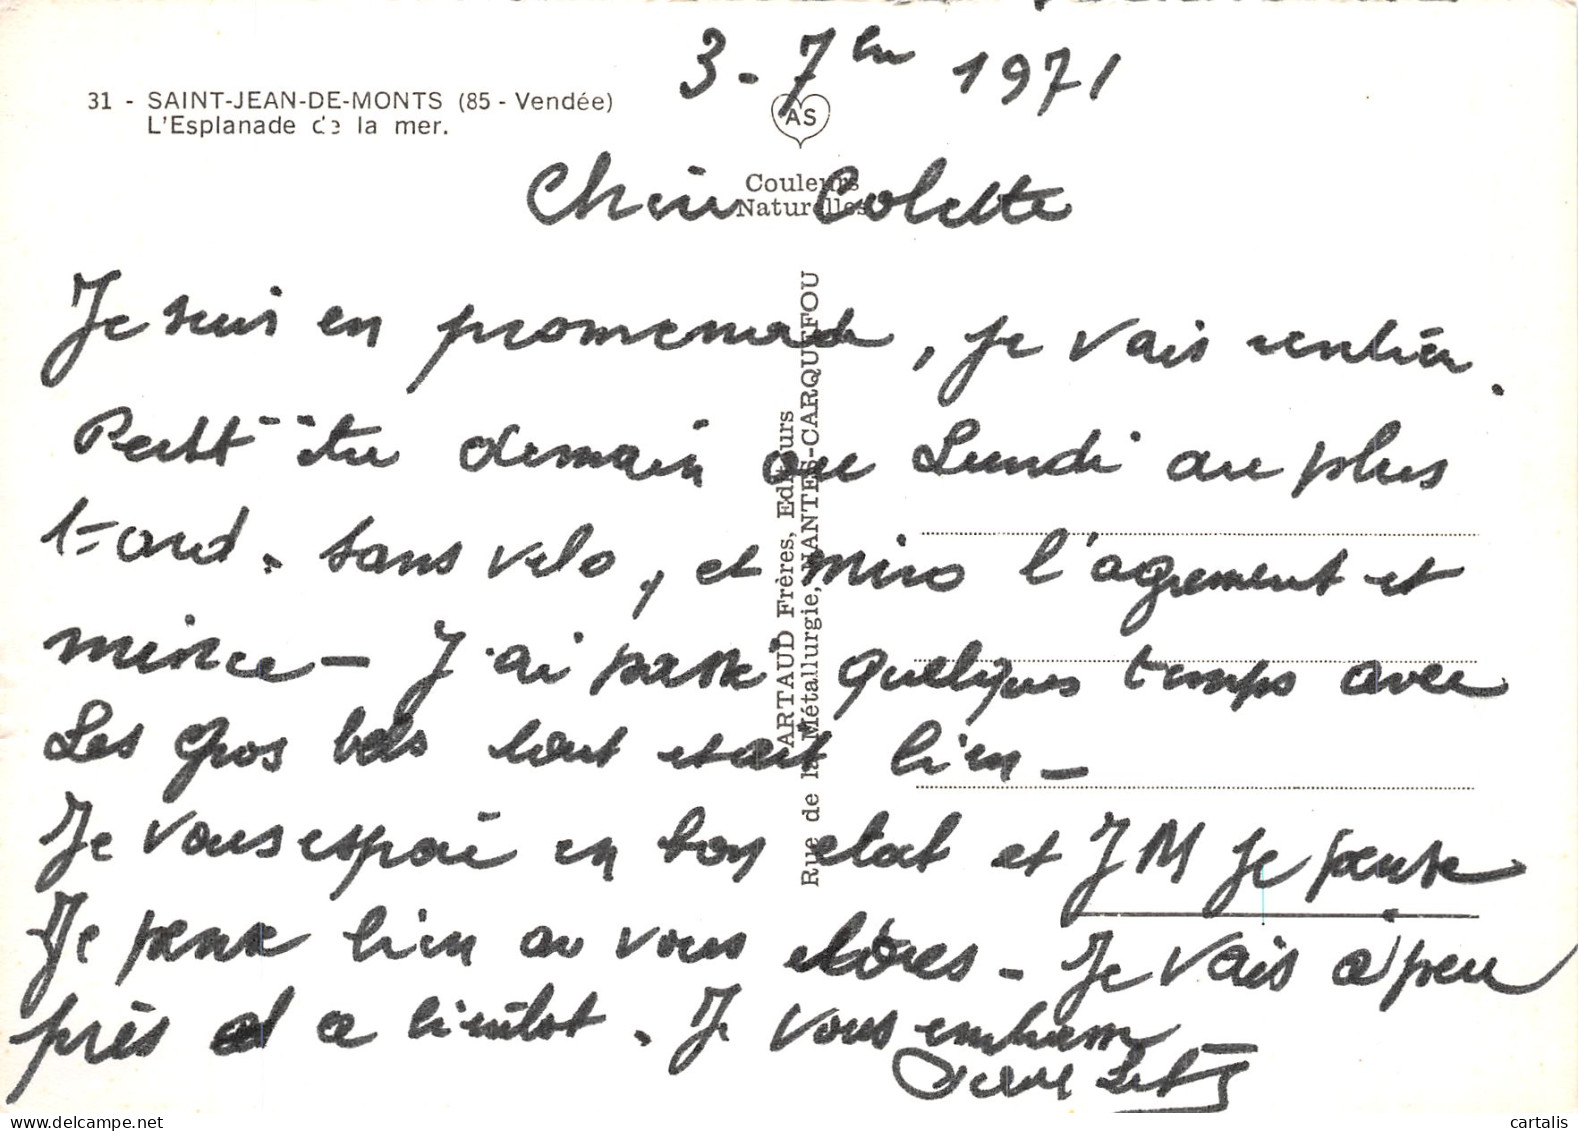 3 - 7 bre 1971
31 - SAINT-JEAN-DE-MONTS (85 - Vendée)
L'Esplanade de la mer.
AS
Couleurs
Naturelles
Chère Colette
Je suis en promenade, je vais rentrer.
Peut être demain ou Lundi au plus
tard. sans velo, et l'agrement et
mince - J'ai passé quelques temps avec
Les gros bras tout etait bien -
Je vous espère en bon etat et JM Je pense
Je pense bien a vous - Je vais a peu
près et a bientôt. Je vous embrasse
ARTAUD Frères, Editeurs
Rue de la Métallurgie, NANTES-CARQUEFOU
cartalis
delcampe.net